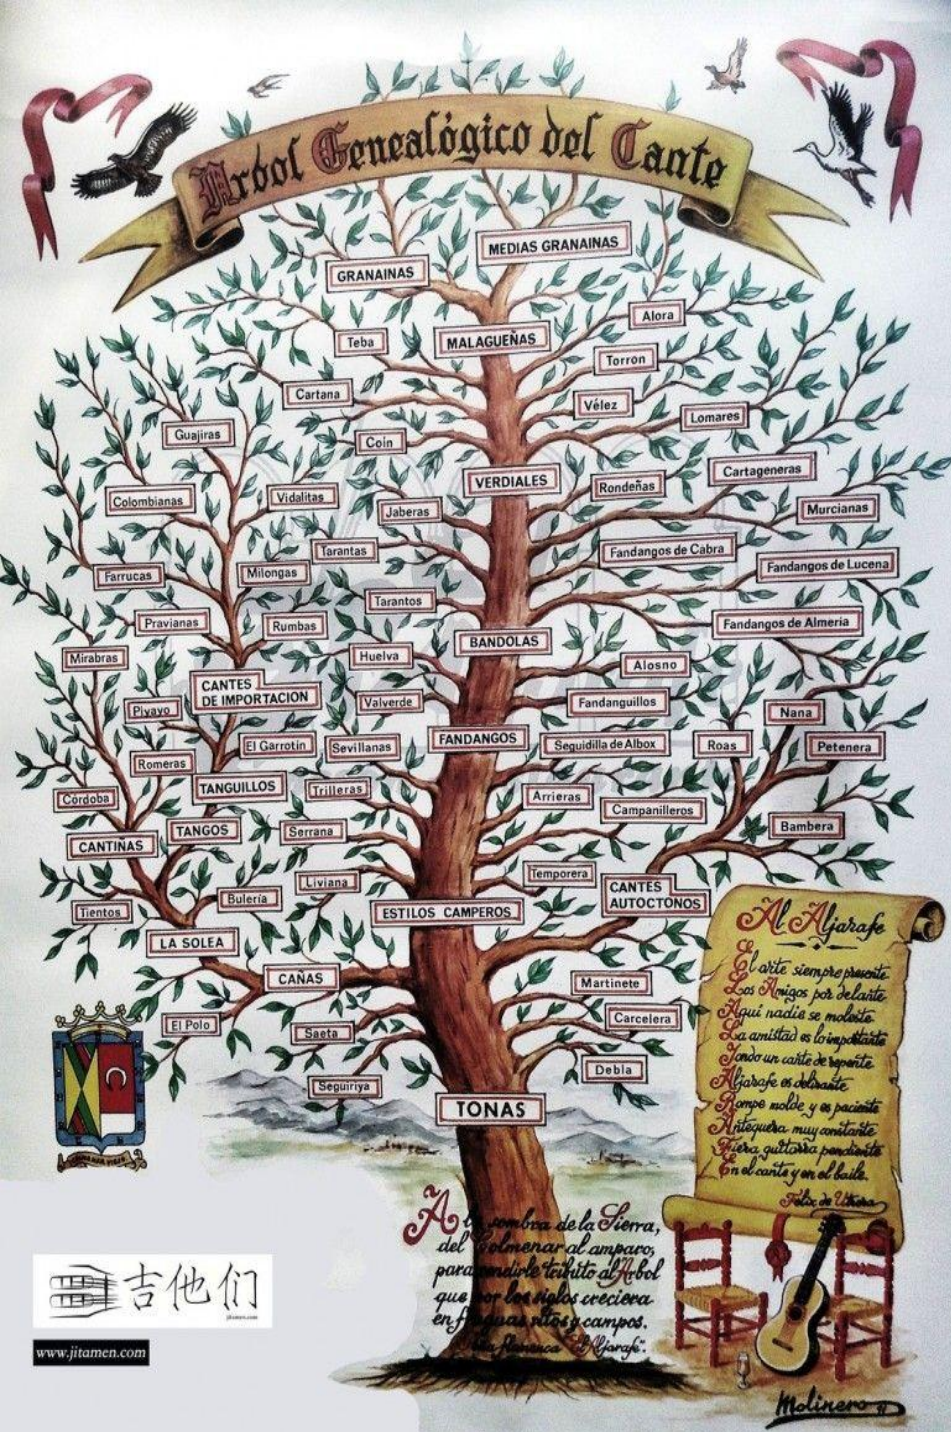 Arbol Genealógico del Cante
MEDIAS GRANAINAS
GRANAINAS
Alora
Teba
MALAGUEÑAS
Torron
Cartana
Vélez
Lomares
Guajiras
Coin
Cartageneras
VERDIALES
Rondeñas
Colombianas
Vidalitas
Jaberas
Murcianas
Tarantas
Fandangos de Cabra
Fandangos de Lucena
Farrucas
Milongas
Tarantos
Pravianas
Rumbas
Fandangos de Almeria
BANDOLAS
Mirabras
Huelva
Alosno
CANTES
DE IMPORTACION
Piyayo
Valverde
Fandanguillos
Nana
El Garrotin
Sevillanas
FANDANGOS
Seguidilla de Albox
Roas
Petenera
Romeras
TANGUILLOS
Trilleras
Córdoba
Arrieras
Campanilleros
TANGOS
Serrana
Bambera
CANTIÑAS
Temporera
Liviana
CANTES
AUTOCTONOS
Bulería
Tientos
ESTILOS CAMPEROS
LA SOLEA
CAÑAS
Martinete
El Polo
Saeta
Carcelera
Debla
Seguiriya
TONAS
Al Aljarafe
El arte siempre presente
Los Amigos por delante
Aquí nadie se moleste
La amistad es lo importante
Jondo un cante de repente
Aljarafe es delirante
Rompe molde y es paciente
Antequera muy constante
Fiera guitarra pendiente
En el cante y en el baile.
Félix de Utrera
A la sombra de la Sierra,
del Colmenar al amparo,
para rendirle tributo al Arbol
que por los siglos creciera
en fraguas, ritos y campos.
flamenca "El Aljarafe".
吉他们
jitamen.com
www.jitamen.com
Molinero